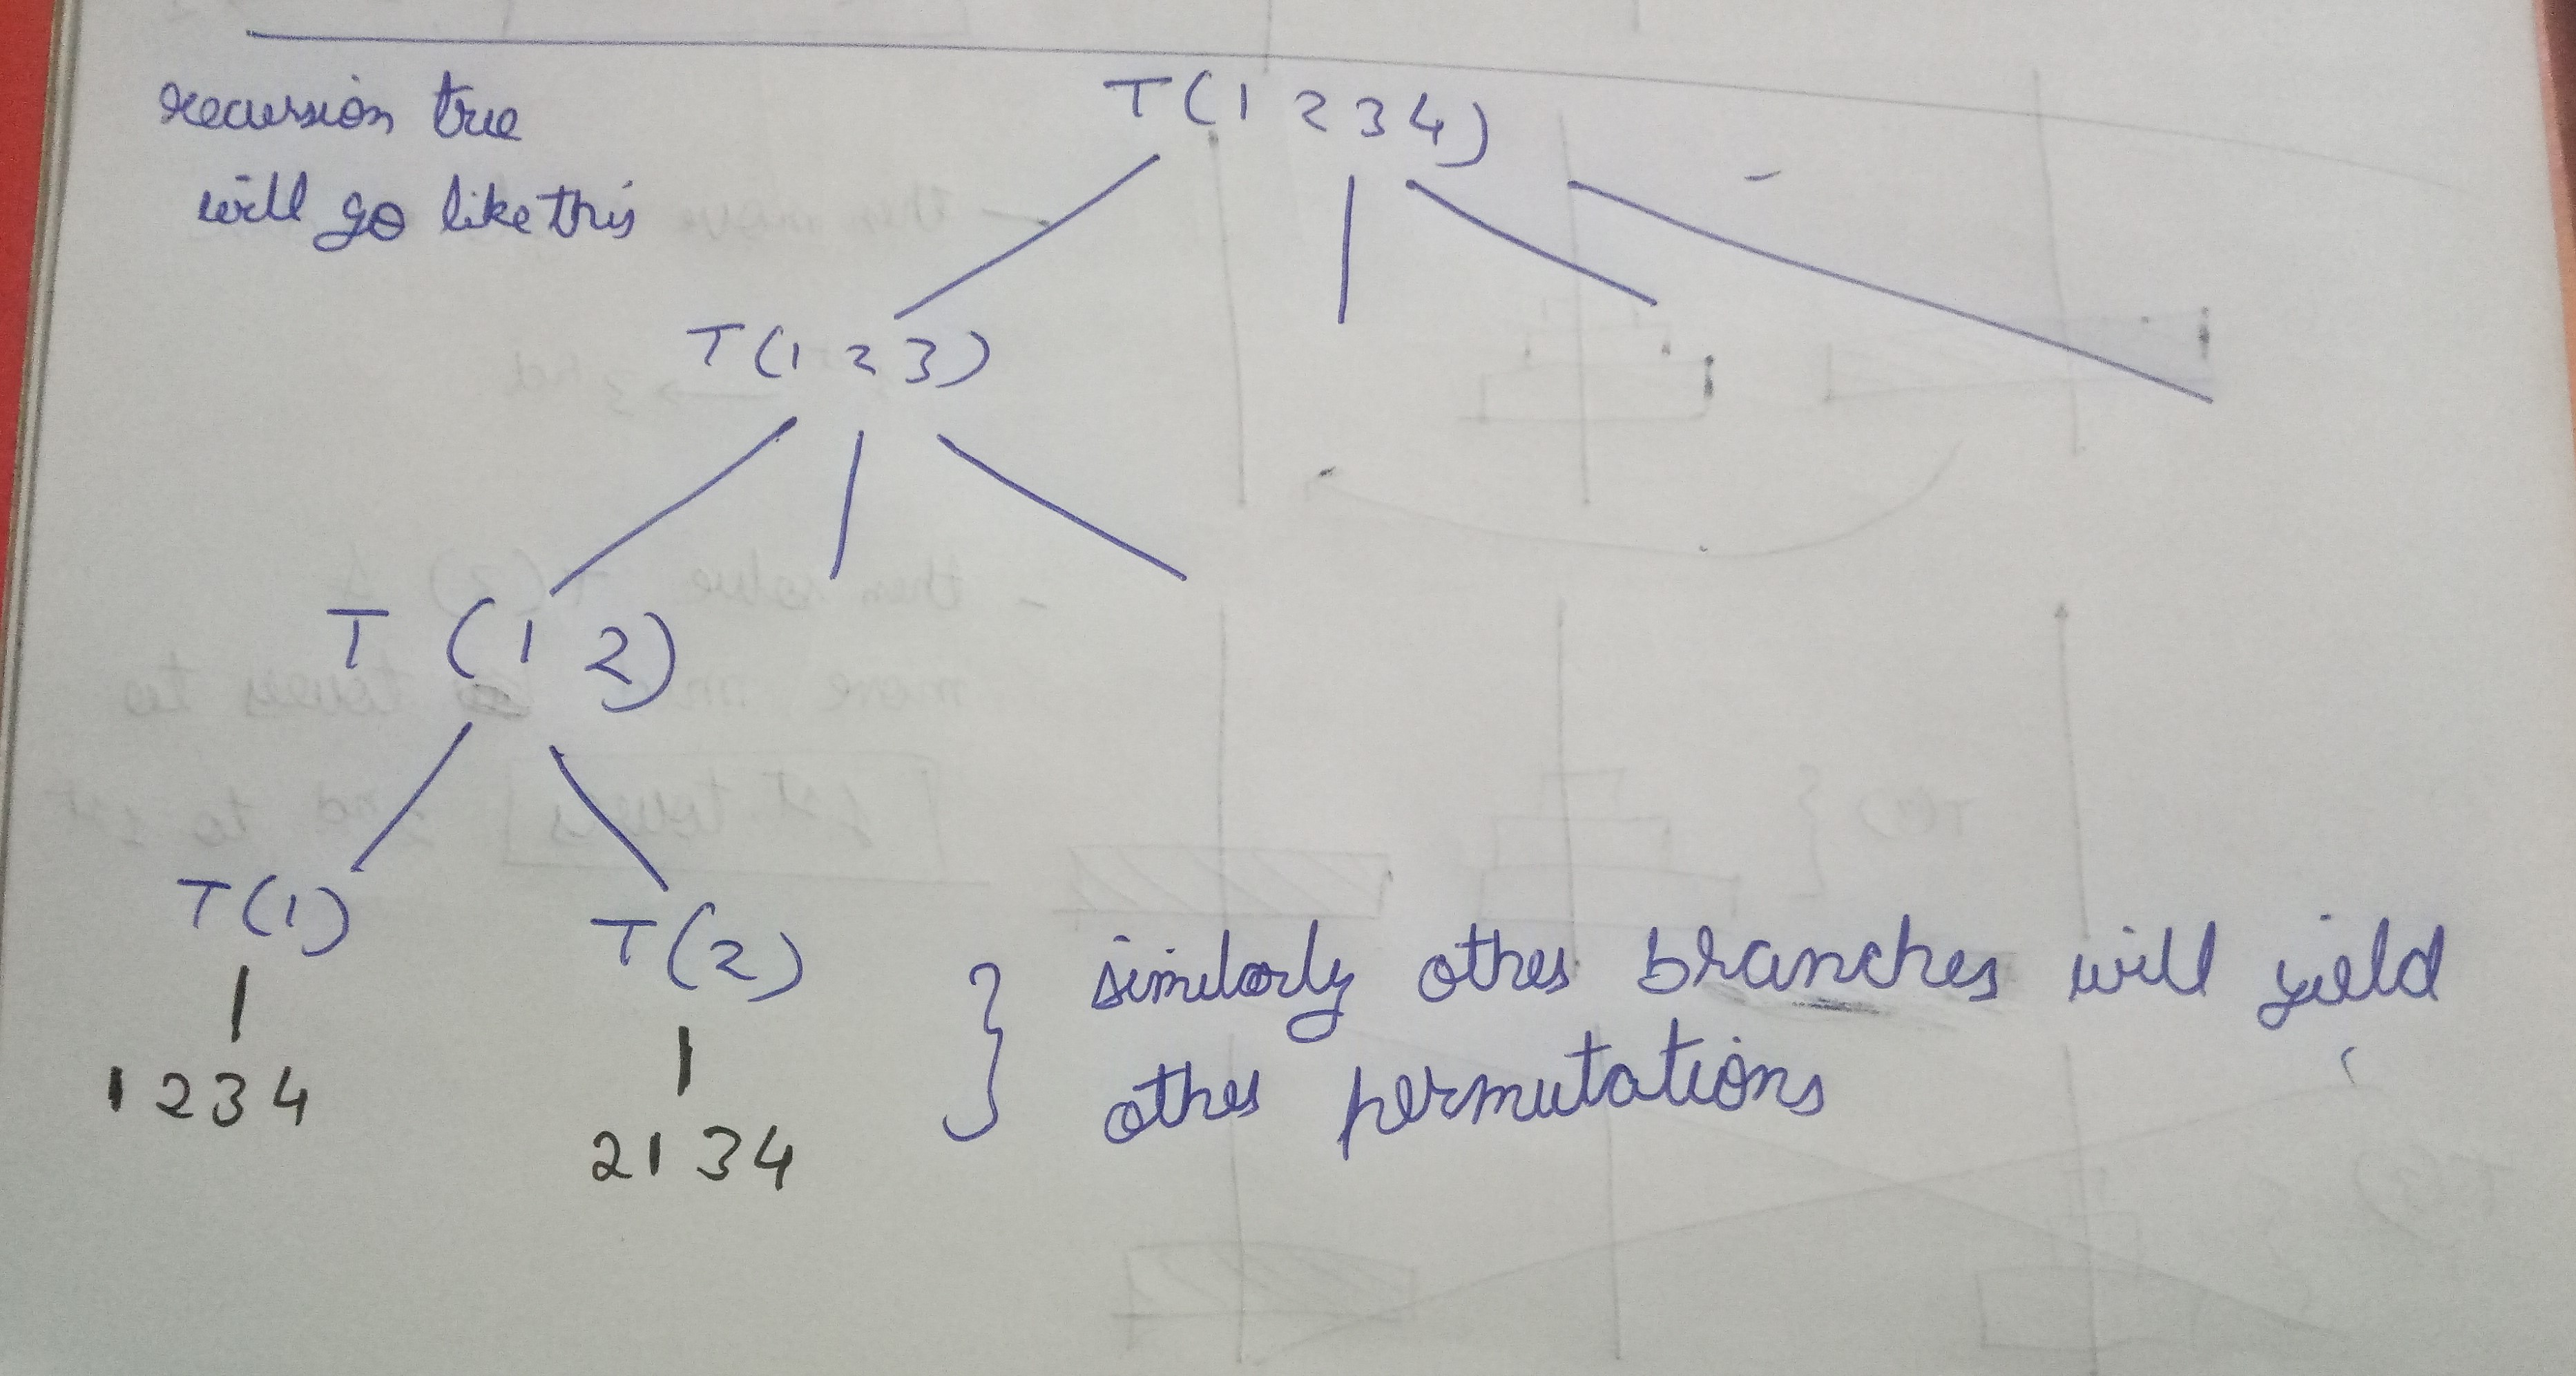 recursion tree
will go like this
T(1 2 3 4)
T(1 2 3)
T (1 2)
T(1)
T(2)
1 2 3 4
2 1 3 4
} similarly other branches will yield
other permutations